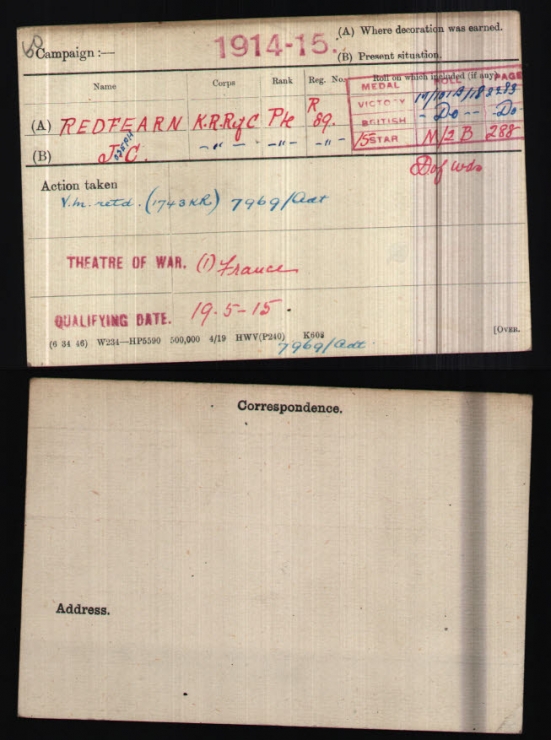 Campaign :— 1914-15. (A) Where decoration was earned.
(B) Present situation.
Name Corps Rank Reg. No. Roll on which included (if any)
MEDAL ROLL PAGE
VICTORY
(A) REDFEARN K.R.Rif C Pte R 89. BRITISH -Do- -Do-
(B) J.C. -"- -"- -"- 15 STAR N/2 B 288
D of Wds
Action taken
V.m. retd. (1743 KR) 7969/Adt
THEATRE OF WAR. (1) France
QUALIFYING DATE. 19-5-15
(6 34 46) W234—HP5590 500,000 4/19 HWV(P240) K608 [OVER.
7969/adt
Correspondence.
Address.